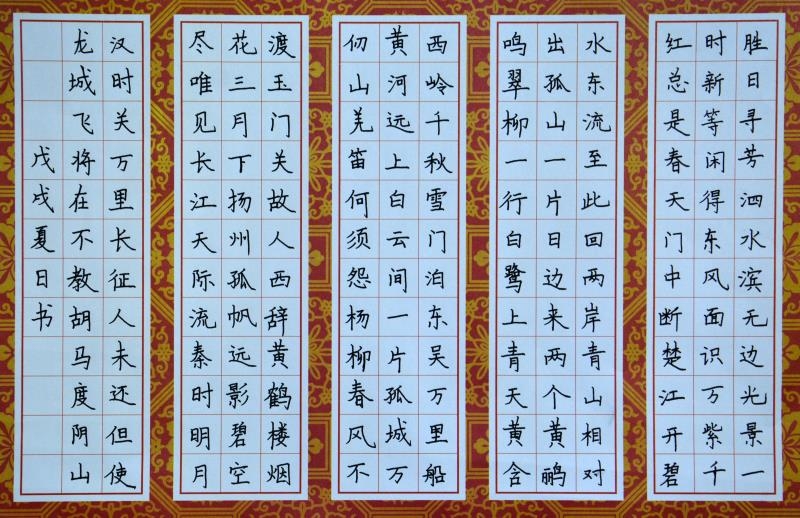 胜日寻芳泗水滨无边光景一
时新等闲得东风面识万紫千
红总是春天门中断楚江开碧
水东流至此回两岸青山相对
出孤山一片日边来两个黄鹂
鸣翠柳一行白鹭上青天黄含
西岭千秋雪门泊东吴万里船
黄河远上白云间一片孤城万
仞山羌笛何须怨杨柳春风不
渡玉门关故人西辞黄鹤楼烟
花三月下扬州孤帆远影碧空
尽唯见长江天际流秦时明月
汉时关万里长征人未还但使
龙城飞将在不教胡马度阴山
戊戌夏日书